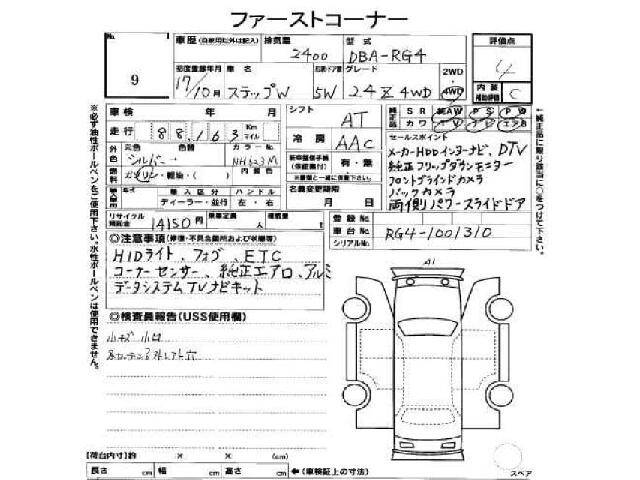 ファーストコーナー
No.
9
車歴(自家用以外は記入)
排気量
2400
型式
DBA-RG4
評価点
4
初度登録年月
17/10月
車名
ステップW
ドア数
5W
グレード
2.4 Z 4WD
2WD・4WD
内装
補助評価
C
車検 年 月
走行 88,163 Km マイル
シフト
AT
冷房
AAC
純正品
S R
AW
P S
P W
カワ
セールスポイント
メーカーHDDインターナビ、DTV
純正フリップダウンモニター
フロントブラインドカメラ
バックカメラ
両側パワースライドドア
外色
元色
シルバー
色替
カラーNo.
NH623M
燃料
ガソリン・軽油・( )
内装色
輸入車
輸入区分
ディーラー・並行
ハンドル
左・右
新車整備手帳
(保証書付)
有・無
(※書類と一緒に掲示)
名義変更期限
月 日
リサイクル預託金
14150円
乗車定員
人
積載量
登録No.
車台No.
RG4-1001310
シリアルNo.
◎注意事項(修復・不具合箇所および状態等)
HIDライト、フォグ、ETC
コーナーセンサー、純正エアロ、アルミ
データシステムTVナビキット
◎検査員報告(USS使用欄)
小キズ 小凹
A1
【荷台内寸】約 × × (cm)
長さ cm
幅 cm
高さ cm
←(車検証上の寸法)
スペア
※必ず油性ボールペンをご使用下さい。水性ボールペンは使用できません。
↑純正品に限り該当に○をつけて下さい。